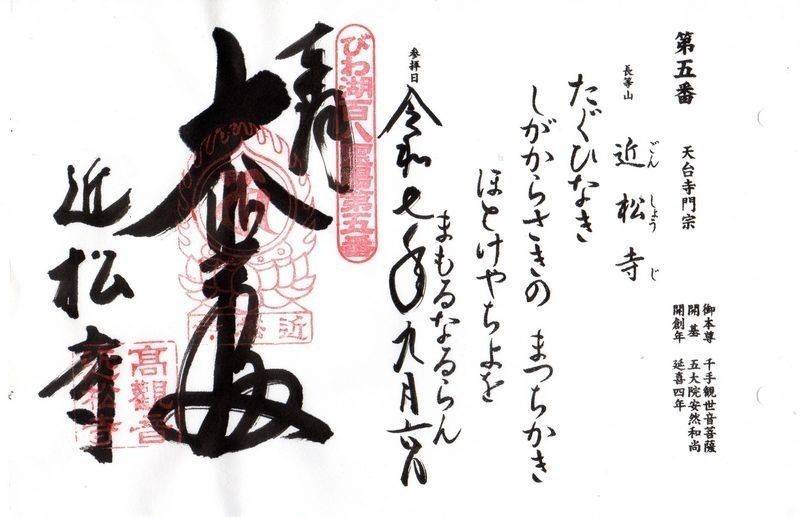 第五番 天台寺門宗
長等山 近松寺
ごん しょう じ
御本尊 千手観世音菩薩
開基 五大院安然和尚
開創年 延喜四年
たぐひなき
しがからさきの まつちかき
ほとけやちよを
まもるなるらん
参拝日 令和七年九月六日
びわ湖百八霊場第五番
近松寺
高觀音
近松寺